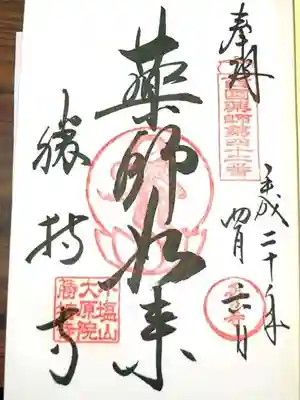 奉拝
西国薬師第四十二番
平成二十年
四月六日
薬師如来
勝持寺
小塩山
大原院
勝持寺